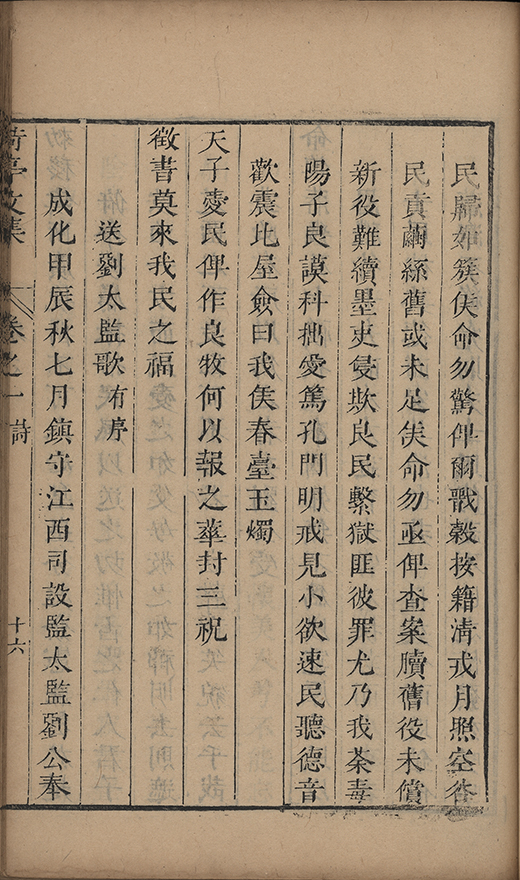 民歸如簇侯命勿驚俾爾戩穀按籍清戎月照空峇
民責繭絲舊或未足侯命勿亟俾查案牘舊役未償
新役難續墨吏侵欺良民繫獄匪彼罪尤乃我荼毒
陽子良謨科拙愛篤孔門明戒見小欲速民聽德音
歡震比屋僉曰我侯春臺玉燭
天子愛民俾作良牧何以報之華封三祝
徵書莫來我民之福
送劉太監歌有序
成化甲辰秋七月鎮守江西司設監太監劉公奉
亭文集 卷之一 詩 十六